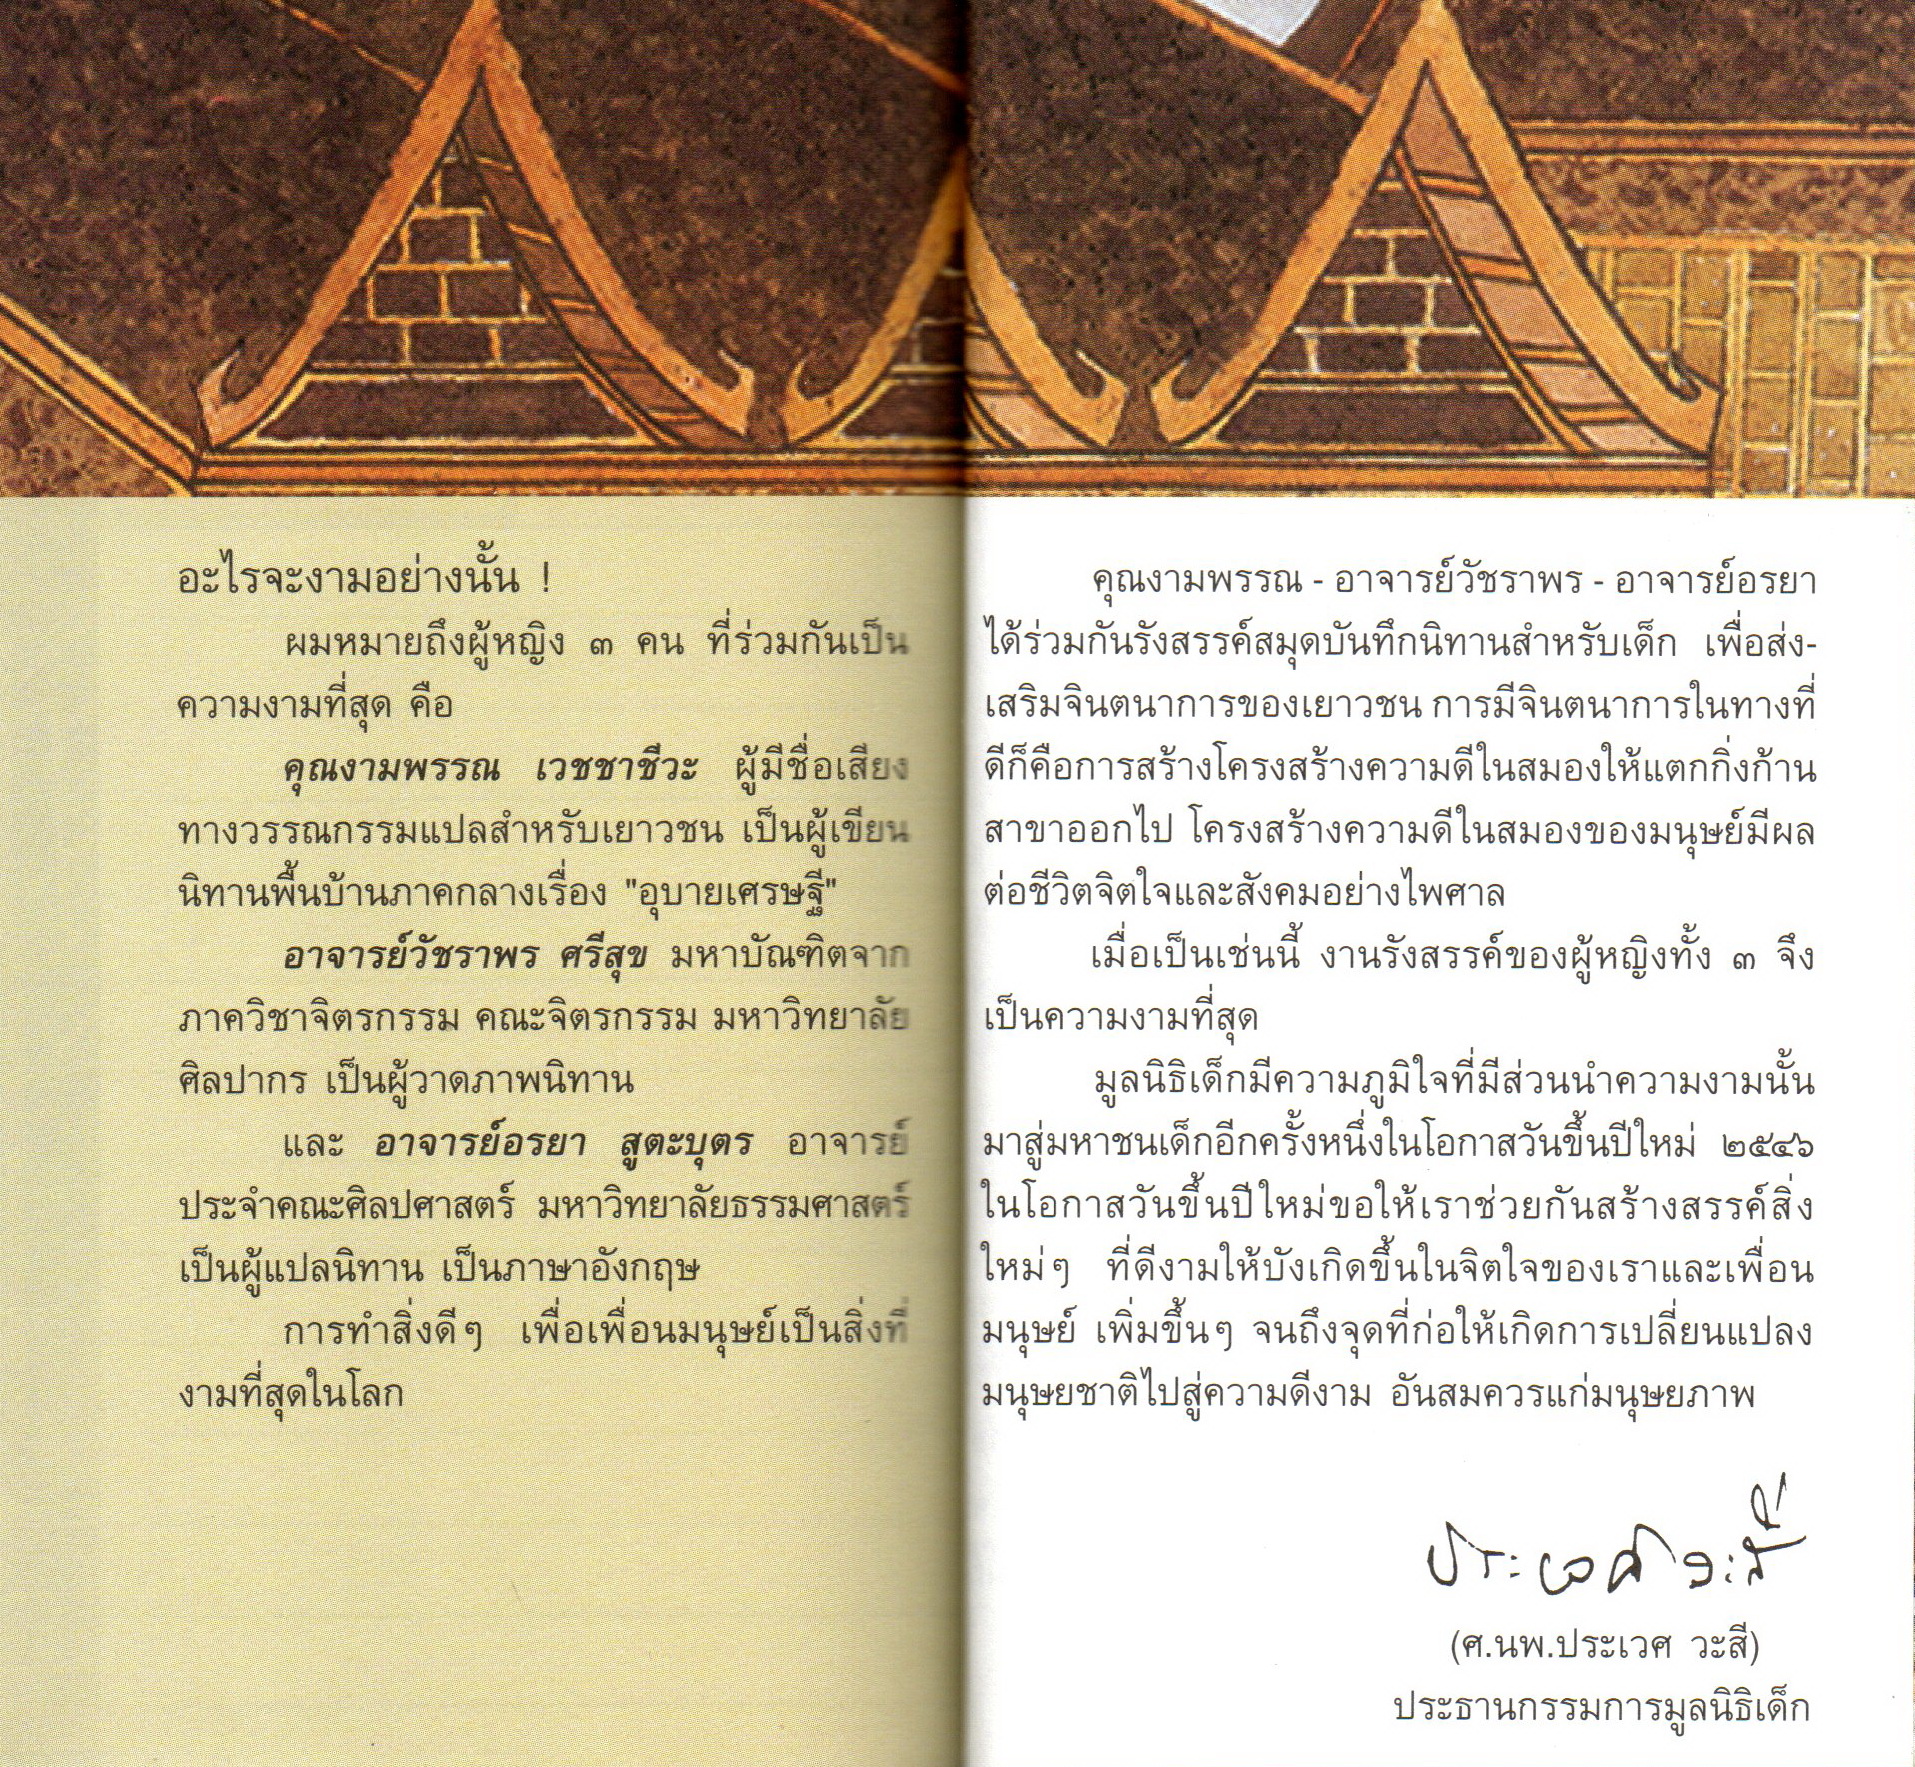 อะไรจะงามอย่างนั้น !
ผมหมายถึงผู้หญิง ๓ คน ที่ร่วมกันเป็น
ความงามที่สุด คือ
คุณงามพรรณ เวชชาชีวะ ผู้มีชื่อเสียง
ทางวรรณกรรมแปลสำหรับเยาวชน เป็นผู้เขียน
นิทานพื้นบ้านภาคกลางเรื่อง "อุบายเศรษฐี"
อาจารย์วัชราพร ศรีสุข มหาบัณฑิตจาก
ภาควิชาจิตรกรรม คณะจิตรกรรม มหาวิทยาลัย
ศิลปากร เป็นผู้วาดภาพนิทาน
และ อาจารย์อรยา สูตะบุตร อาจารย์
ประจำคณะศิลปศาสตร์ มหาวิทยาลัยธรรมศาสตร์
เป็นผู้แปลนิทาน เป็นภาษาอังกฤษ
การทำสิ่งดีๆ เพื่อเพื่อนมนุษย์เป็นสิ่งที่
งามที่สุดในโลก
คุณงามพรรณ - อาจารย์วัชราพร - อาจารย์อรยา
ได้ร่วมกันรังสรรค์สมุดบันทึกนิทานสำหรับเด็ก เพื่อส่ง-
เสริมจินตนาการของเยาวชน การมีจินตนาการในทางที่
ดีก็คือการสร้างโครงสร้างความดีในสมองให้แตกกิ่งก้าน
สาขาออกไป โครงสร้างความดีในสมองของมนุษย์มีผล
ต่อชีวิตจิตใจและสังคมอย่างไพศาล
เมื่อเป็นเช่นนี้ งานรังสรรค์ของผู้หญิงทั้ง ๓ จึง
เป็นความงามที่สุด
มูลนิธิเด็กมีความภูมิใจที่มีส่วนนำความงามนั้น
มาสู่มหาชนเด็กอีกครั้งหนึ่งในโอกาสวันขึ้นปีใหม่ ๒๕๔๖
ในโอกาสวันขึ้นปีใหม่ขอให้เราช่วยกันสร้างสรรค์สิ่ง
ใหม่ๆ ที่ดีงามให้บังเกิดขึ้นในจิตใจของเราและเพื่อน
มนุษย์ เพิ่มขึ้นๆ จนถึงจุดที่ก่อให้เกิดการเปลี่ยนแปลง
มนุษยชาติไปสู่ความดีงาม อันสมควรแก่มนุษยภาพ
ประเวศ วะสี
(ศ.นพ.ประเวศ วะสี)
ประธานกรรมการมูลนิธิเด็ก